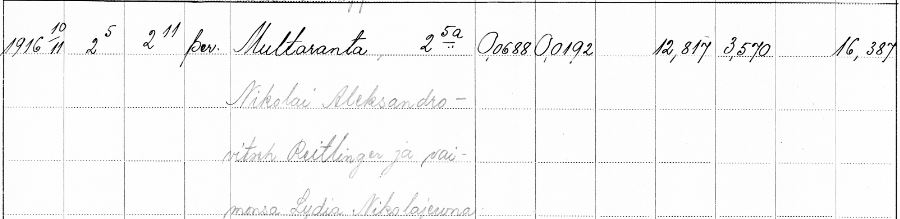 1916 10/11 2⁵ 2¹¹ per. Multaranta, 2⁵ᵃ 0,0688 0,0192 12,817 3,570 16,387
Nikolai Aleksandro-
vitsh Reitlinger ja vai-
monsa Lydia Nikolajewna